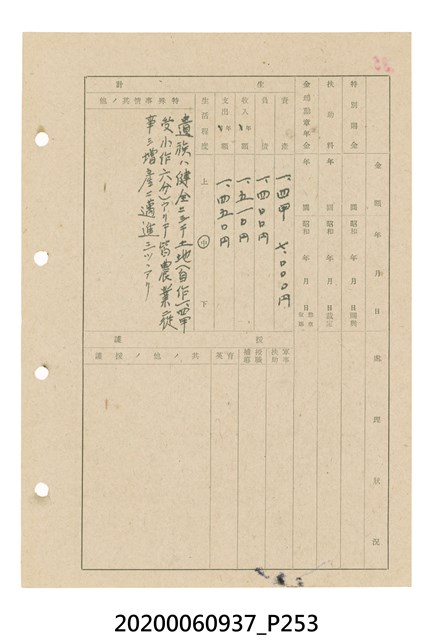 金額 年月日 處理狀況
特別賜金 圓 昭和 年 月 日
扶助料 年 圓 昭和 年 月 日 裁定
金鵄勳章年金 年 圓 昭和 年 月 日
生計
資產 一、四甲 七、〇〇〇円
負債 一、四〇〇円
收入年額 一、五一〇円
支出年額 一、四五〇円
生活程度 上 中 下
特殊事情其ノ他
遺族ハ健全ニシテ土地(自作一、四甲
受小作六分)アリテ皆農業從
事シ增産ニ邁進シツヽアリ
援護
軍事扶助
育英
其ノ他ノ援護
20200060937_P253